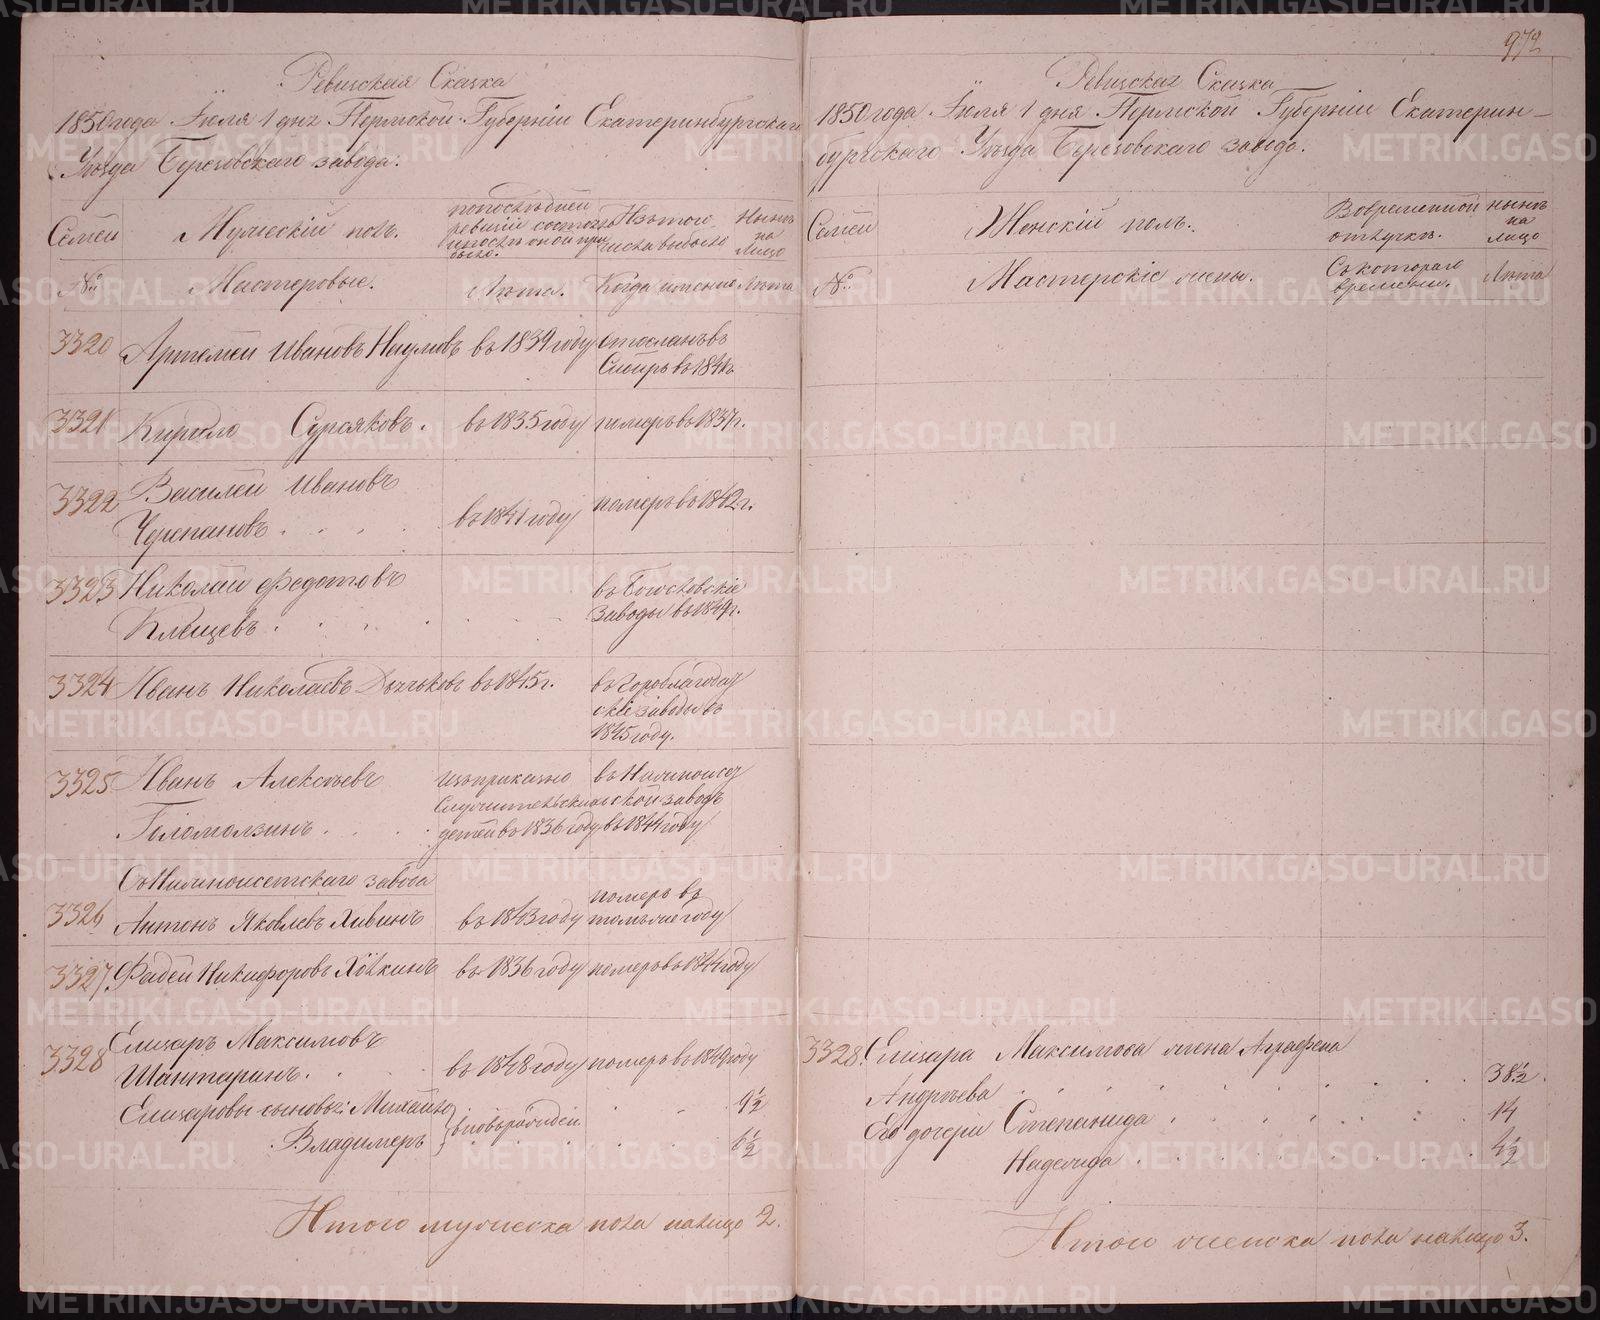 Ревизская Сказка
1850 года Іюля 1 дня Пермской Губерніи Екатеринбургскаго
Уѣзда Березовскаго завода.
Семей Мужескій полъ. по последней ревизіи состояло и после оной прибыло. Изъ того числа выбыло Нынѣ на лицо
№ Мастеровые. Лѣта. Когда именно Лѣта
3320 Артемей Ивановъ Наумовъ въ 1839 году отосланъ въ
Сибирь въ 1841г.
3321 Кирило Сурсяковъ. въ 1835 году померъ въ 1837г.
3322 Василей Ивановъ
Черепановъ . . . . въ 1841 году померъ въ 1842г.
3323 Николай Федотовъ
Клещевъ . . . . въ Богословскіе
заводы въ 1849г.
3324 Иванъ Николаевъ въ 1845г. въ Гороблагодат
скіе заводы въ
1845 году.
3325 Иванъ Алексѣевъ изъ приказно въ Нижноисет
служительских ской заводъ
Голомолзинъ . . . . детей въ 1836 году въ 1844 году
Съ Нижноисетскаго завода
3326 Антонъ Яковлевъ Хивинъ въ 1843 году померъ въ
томъ же году
3327 Фадей Никифоровъ Хоткинъ въ 1836 году померъ въ 1844 году
3328 Елизаръ Максимовъ
Шантаринъ. . . въ 1848 году померъ въ 1849 году
Елизаровы сыновья: Михайло вновьрожденные . . 9½
Владимеръ . . . . 6½
Итого мужеска пола налицо 2.
972
Ревизская Сказка
1850 года Іюля 1 дня Пермской Губерніи Екатерин-
бургскаго Уѣзда Березовскаго завода.
Семей Женскій полъ. Во временной отлучкѣ. нынѣ на лицо
№ Мастерскіе жены. Съ котораго времени. Лѣта
3328. Елизара Максимова жена Аграфена
Андреева . . . . . . 38½.
Его дочери Степанида . . . . . 14
Надежда . . . . . . 4½
Итого женска пола налицо 3.
METRIKI.GASO-URAL.RU